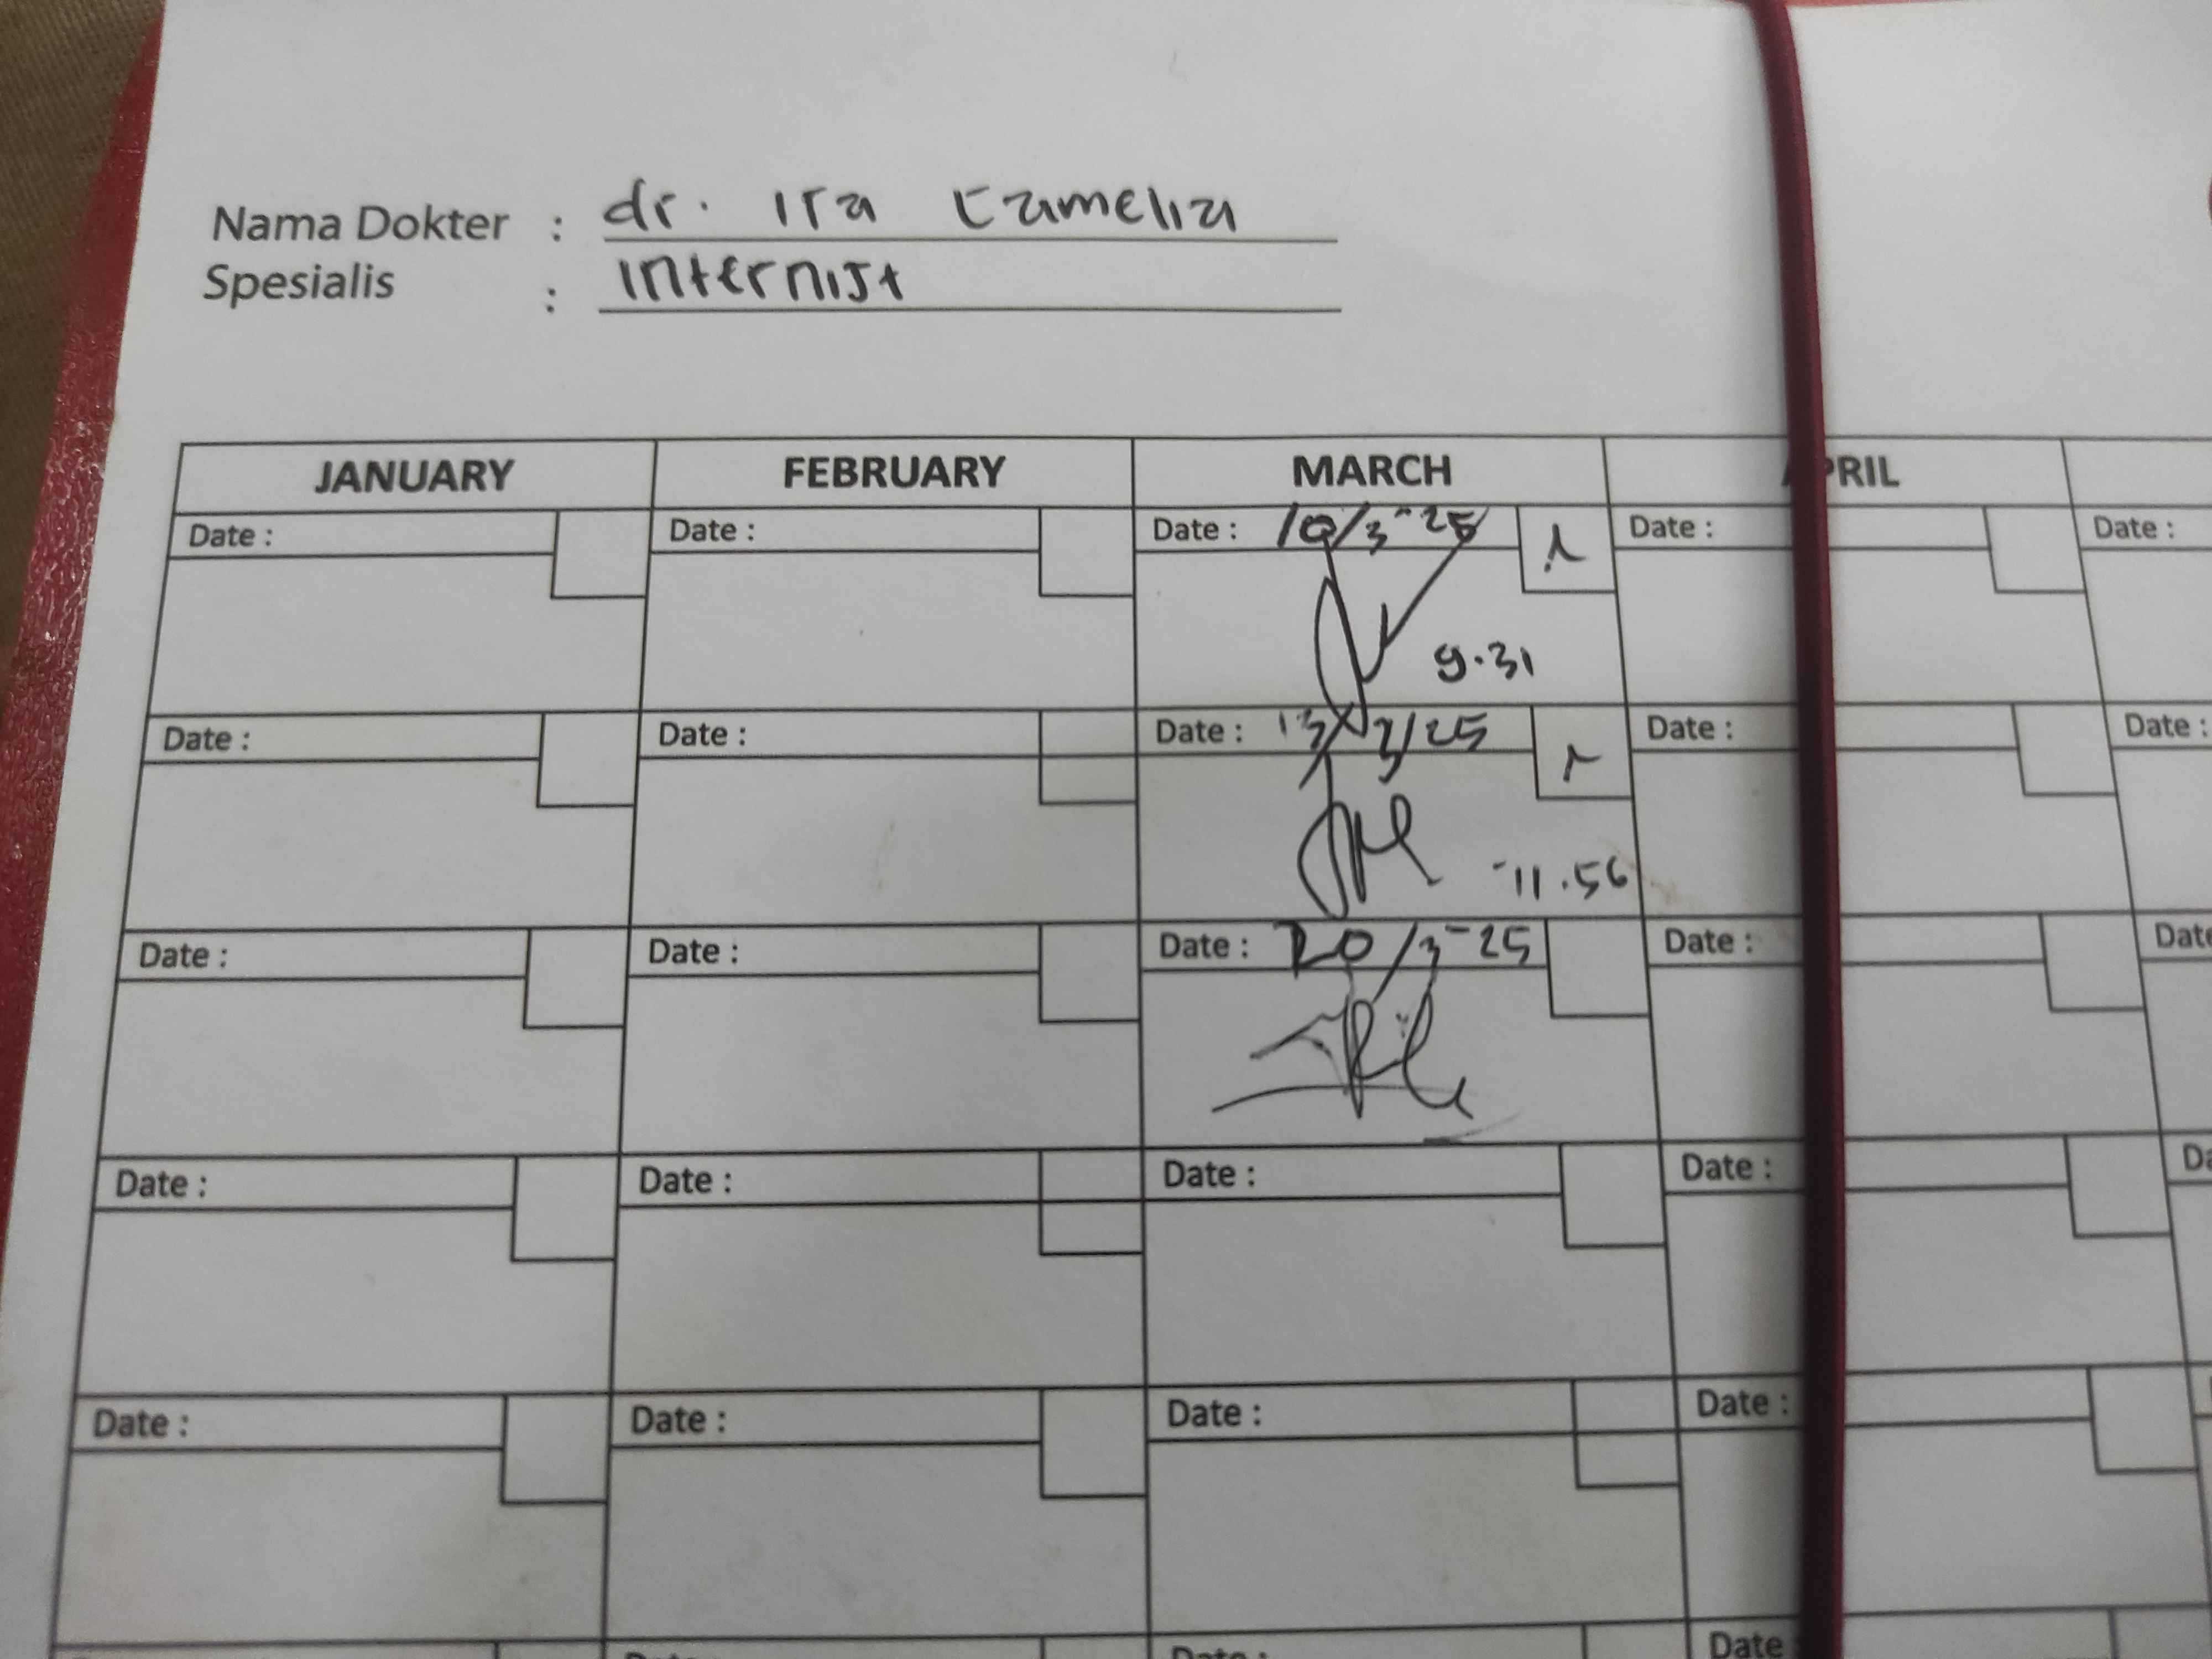 Nama Dokter : dr. Ira Camelia
Spesialis : Internist
JANUARY FEBRUARY MARCH APRIL
Date : Date : Date : 10/3-25 Date : Date :
9.31
Date : Date : Date : 13/3/25 Date : Date :
11.56
Date : Date : Date : 20/3-25 Date : Date
Date : Date : Date : Date : Da
Date : Date : Date : Date :
Date : Date